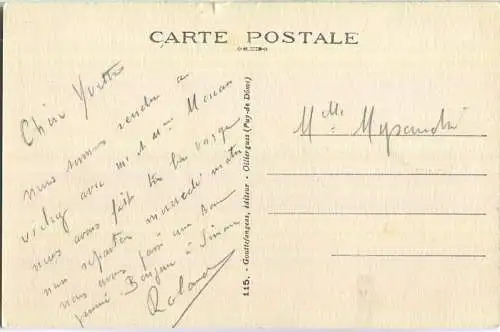 CARTE POSTALE
Chère Yvette
nous sommes rendu à
vichy avec Mr & Mme
nous avons fait très bon voyage
nous repartons mercredi matin
nous avons passé une bonne
Bonjour à Simone
Roland
115. - Gouttefangeas, éditeur - Olliergues (Puy-de-Dôme)
Mlle